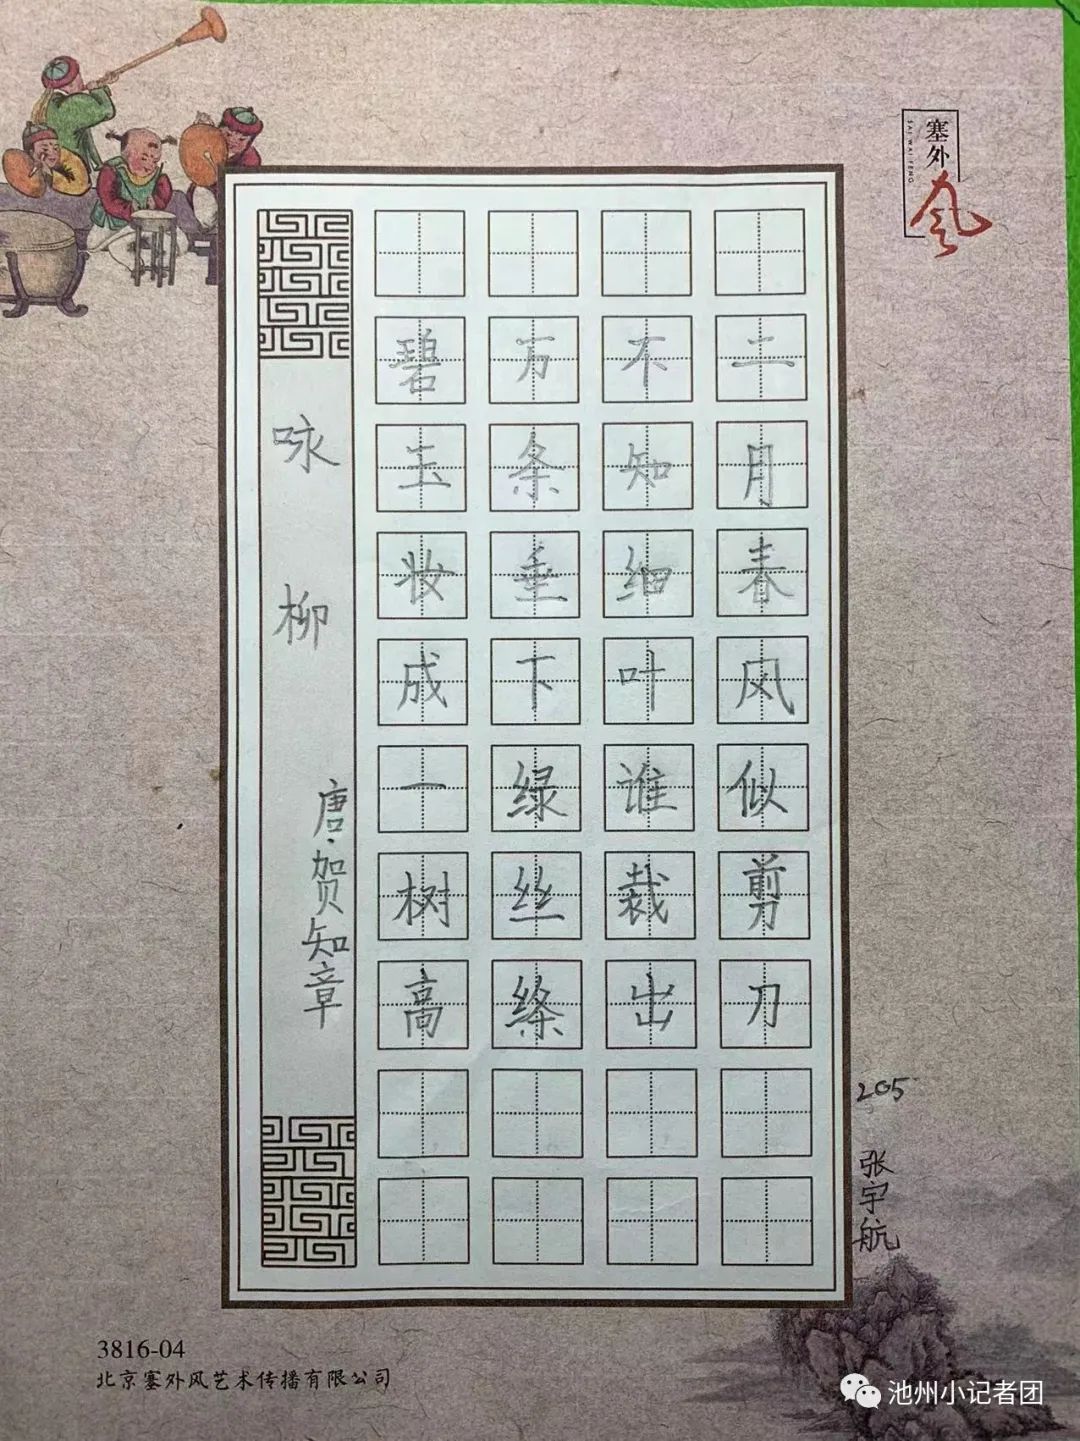 咏柳
唐·贺知章
碧玉妆成一树高
万条垂下绿丝绦
不知细叶谁裁出
二月春风似剪刀
205
张宇航
塞外风
SAI WAI FENG
3816-04
北京塞外风艺术传播有限公司
池州小记者团